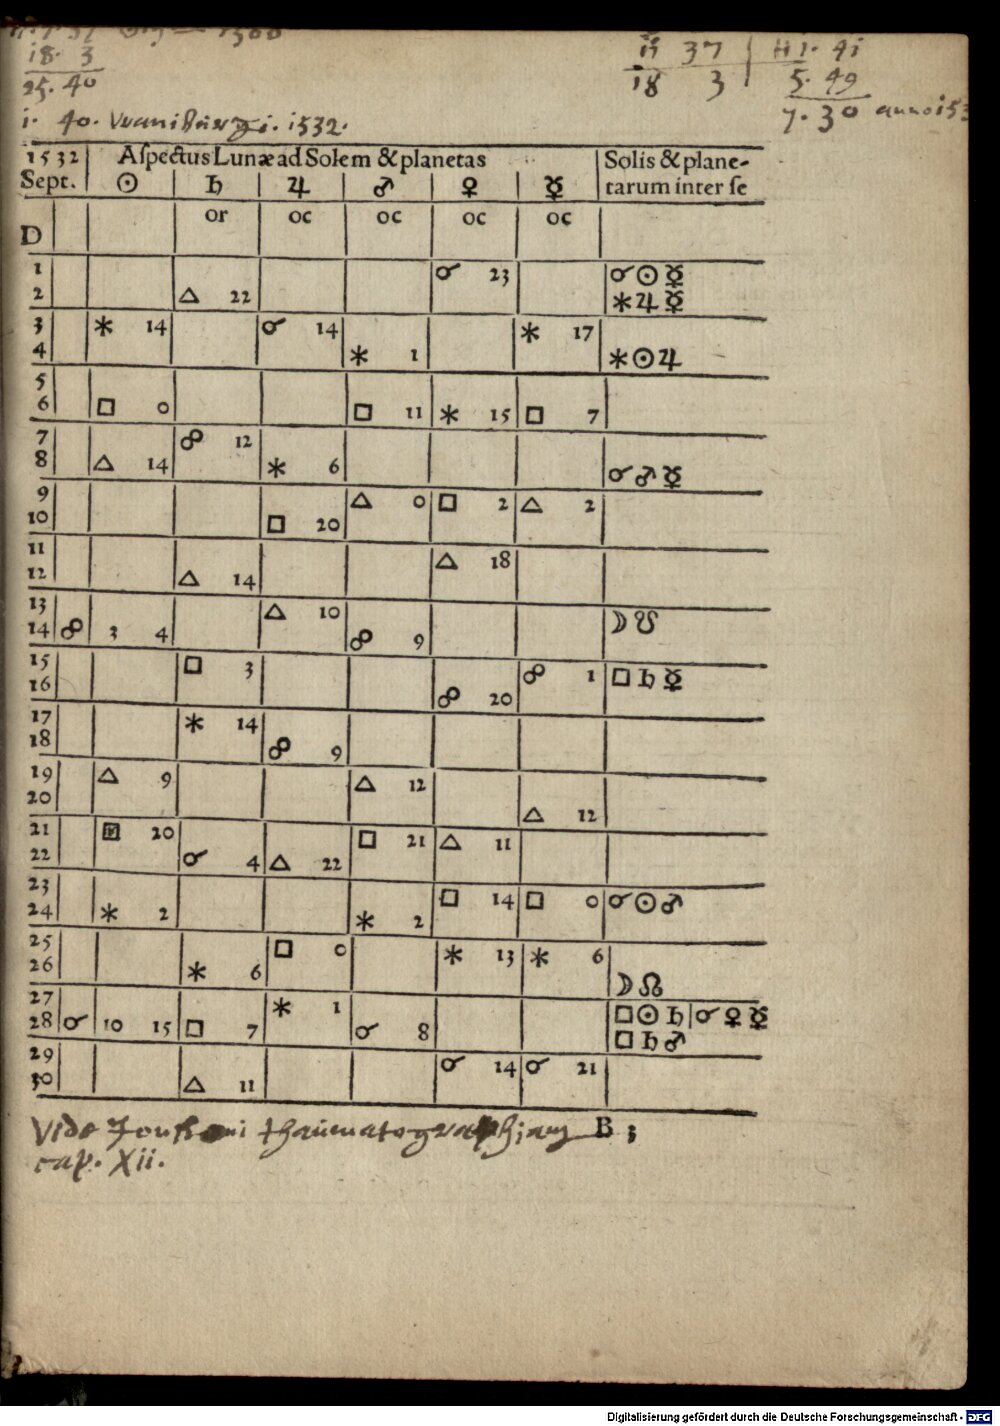 18. 3
25. 40
11 37 H 1. 41
18 3 5. 49
7. 30 anno 153
1. 40. 1. 1532.
1532 Aſpectus Lunæ ad Solem & planetas Solis & plane-
Sept. ☉ ♄ ♃ ♂ ♀ ☿ tarum inter ſe
D or oc oc oc oc
1 ☌ 23 ☌ ☉ ☿
2 △ 22 ⚹ ♃ ☿
3 ⚹ 14 ☌ 14 ⚹ 17
4 ⚹ 1 ⚹ ☉ ♃
5
6 □ 0 □ 11 ⚹ 15 □ 7
7 ☍ 12
8 △ 14 ⚹ 6 ☌ ♂ ☿
9 △ 0 □ 2 △ 2
10 □ 20
11 △ 18
12 △ 14
13 △ 10
14 ☍ 3 4 ☍ 9 ☽ ☋
15 □ 3 ☍ 1 □ ♄ ☿
16 ☍ 20
17 ⚹ 14
18 ☍ 9
19 △ 9 △ 12
20 △ 12
21 □ 20 □ 21 △ 11
22 ☌ 4 △ 22
23 □ 14 □ 0 ☌ ☉ ♂
24 ⚹ 2 ⚹ 2
25 □ 0 ⚹ 13 ⚹ 6
26 ⚹ 6 ☽ ☊
27 ⚹ 1 □ ☉ ♄ | ☌ ♀ ☿
28 ☌ 10 15 □ 7 ☌ 8 □ ♄ ♂
29 ☌ 14 ☌ 21
30 △ 11
Vide thaumatographiam B 3
cap. Xii.
Digitalisierung gefördert durch die Deutsche Forschungsgemeinschaft - DFG